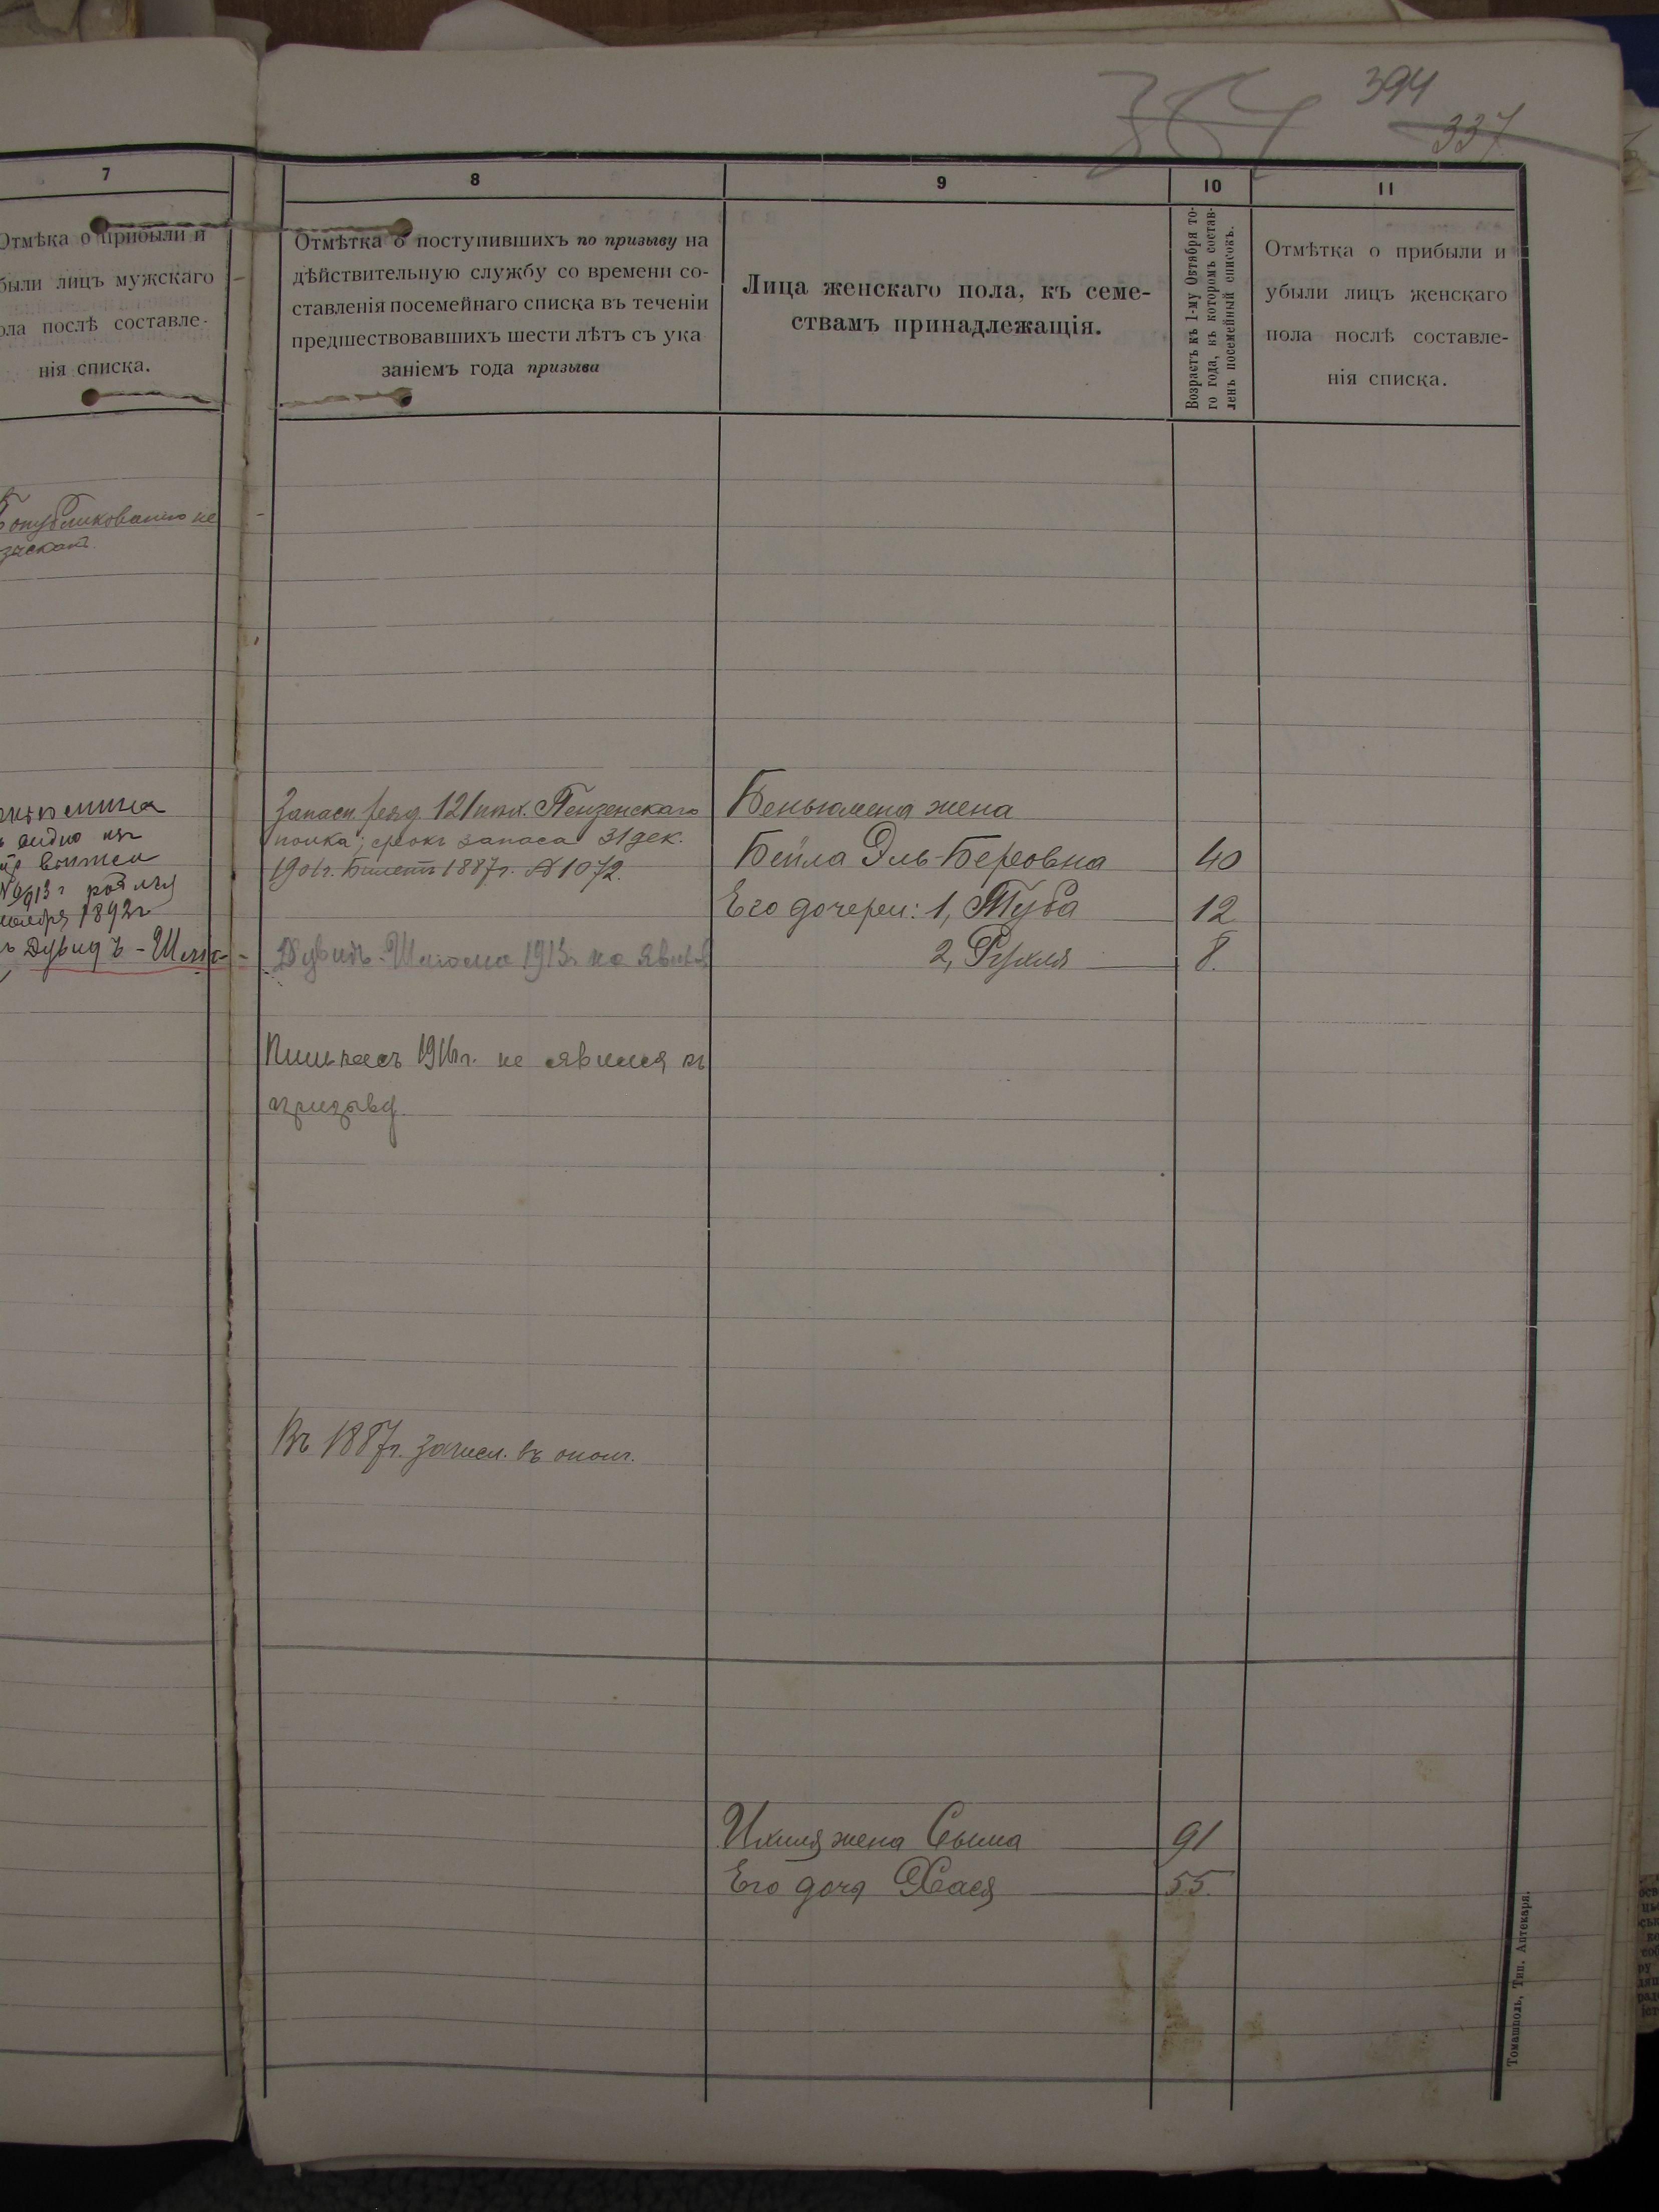 394
337
7
Отмѣка о прибыли и
были лицъ мужскаго
ола послѣ составле-
нія списка.
8
Отмѣтка о поступившихъ по призыву на
дѣйствительную службу со времени со-
ставленія посемейнаго списка въ теченіи
предшествовавшихъ шести лѣтъ съ ука
заніемъ года призыва
9
Лица женскаго пола, къ семе-
ствамъ принадлежащія.
10
Возрастъ къ 1-му Октября то-
го года, къ которомъ состав-
ленъ посемейный списокъ.
11
Отмѣтка о прибыли и
убыли лицъ женскаго
пола послѣ составле-
нія списка.
опубликованію не
1892г
Дувидъ-Шлио-
Запасн. ряд. 121 пѣх. Пензенскаго
полка; срокъ запаса 31 дек.
1901г. Билетъ 1887г. № 1072.
Дувидъ-Шлиома 1913г не явился
Пинхасъ 1916г. не явился къ
призыву.
Въ 1887г. зачисл. въ ополч.
Беньюмена жена
Бейла Эль-Беровна 40
Его дочери: 1, Туба 12
2, Рухля 8.
Ихиля жена Сыма 91
Его дочь Хася 55.
Томашполь, Тип. Аптекаря.